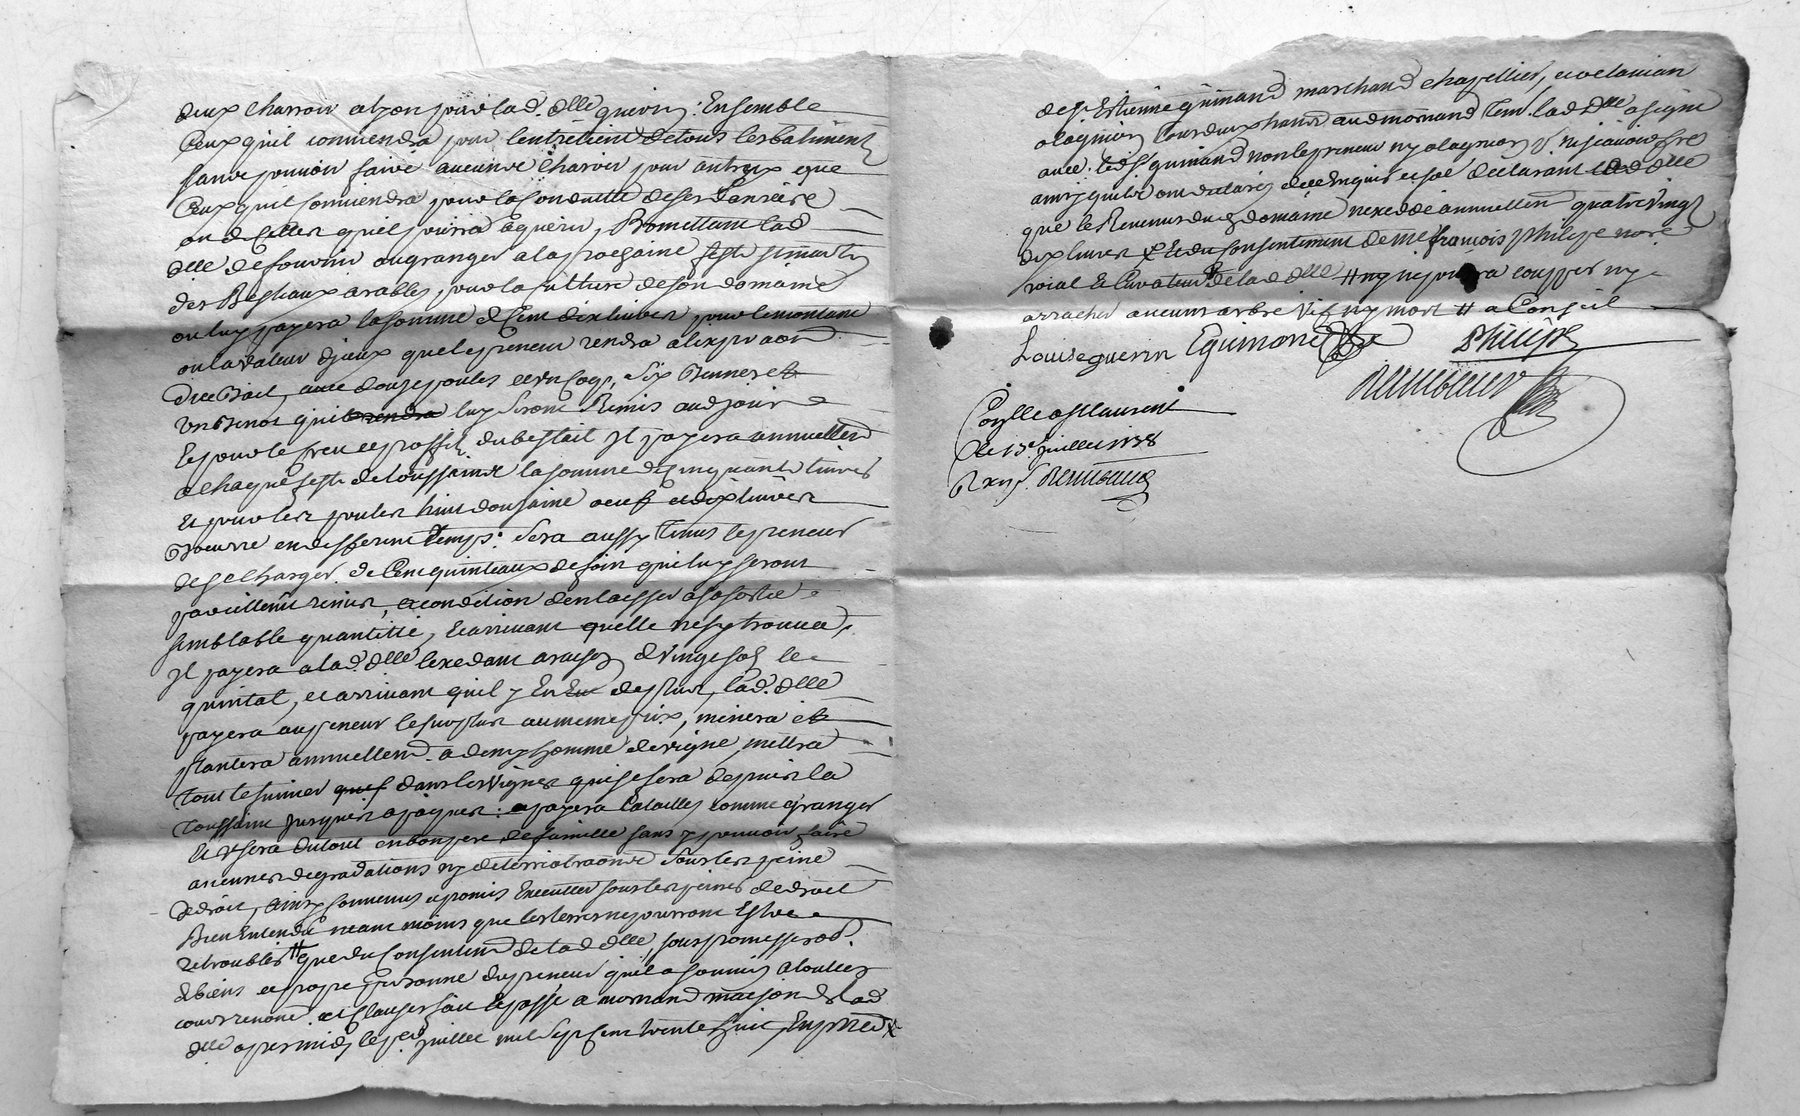 deux charrois a lyon pour lad. dlle guerin, Ensemble
Ceux qu'il conviendra pour l'entretient de tous les batiments
sans pouvoir faire aucuns charrois pour autruy que
Ceux quil conviendra pour la conduitte de ses danrées
ou de celles quil pourra aquerir, Promettant lad
dlle de fournir au granger a la prochaine feste st martin
des Bestiaux arables, pour la culture de son domaine
ou luy payera la somme de Cent dix livres pour le montant
ou la valeur d'jceux que le preneur rendra a l'expiraon
du Bail, avec douze poules et un Coq, six Bennes et
un Benot qui luy seront Remis aud jour
Et pour le creu et proffit du bestail Jl payera annuellemt
a chaque feste de toussaint la somme de cinquante livres
Et pour les poules huit douzaine oeufs et dix livres
Beurre en different temps: sera aussy tenus le preneur
de se charger de Cent quinteaux de foin qui luy seront
pareillemt remis, a condition d'en laisser a sa sortie
semblable quantitté, Et arrivant quelle ne s'y trouva,
Jl payera a lad. dlle l'exedant a raison de vingt sols le
quintal, et arrivant quil y En Eut de plus, lad. dlle
payera au preneur le surplus au meme prix, minera et
plantera annuellemt a deux homme de vigne, mettra
tout le fumier dans les vignes qui se fera depuis la
toussaint jusques a paques: payera la tailles comme granger
Et usera du tout en bon pere de famille sans y pouvoir faire
aucunes degradations ny deterrioraons sous les peine
de droit, ainsy convenus et promis Executter sous les peines de droit
Bien Entendu neant moins que les terres ne pourront Estre
retroublés # que du Consentemt de lad dlle, sous promesses od.
de biens et propre personne du preneur quil a soumis a touttes
cours renonc. et clauses fait et passé a mornand maison de lad
dlle apres midy le per juillet mil sept cent trente huit, En prnce
de sr. Estienne guinand marchand chapellier, et
lad dlle a signé
avec led sr guinand non le preneur ny
que le Revenus dud domaine n'exedde annuellemt quatre vingt
dix livres Et du consentement de me francois philipe
Et Curateur de lad dlle # ny ne pourra coupper ny
arracher aucuns arbre vif ny mort #
Louise guerin E guinand Philipe
Remibaud
Conllé a st laurent
le 13e juillet 1738
R xx s. Remibaud